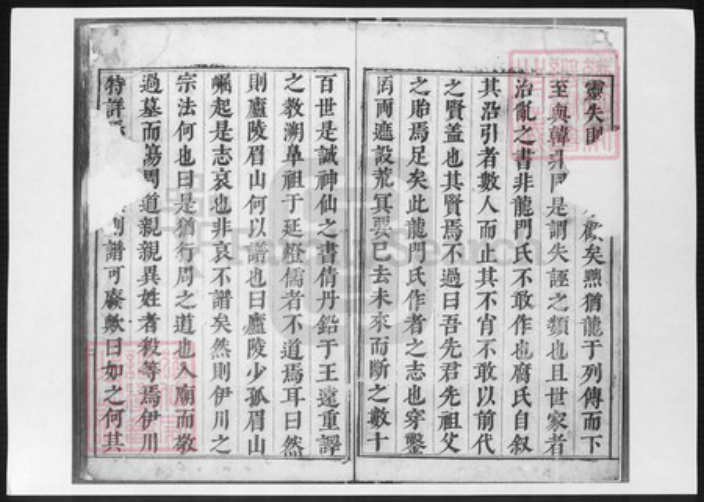 靈失則歟矣然猶龍于列傳而下
至與韓非同是謂失誣之類也且世家者
治亂之書非龍門氏不敢作也腐氏自叙
其沿引者數人而止其不肯不敢以前代
之賢盖也其賢焉不過曰吾先君先祖父
之貽焉足矣此龍門氏作者之志也穿鑿
罔兩遮設荒冥要已去未來而斷之數十
百世是誠神仙之書倩丹鉛于王遠重譯
之教溯鼻祖于廷燈儒者不道焉耳曰然
則廬陵眉山何以譜也曰廬陵少孤眉山
崛起是志哀也非哀不譜矣然則伊川之
宗法何也曰是猶行周之道也入廟而敬
過墓而蕩問道親親異姓者殺等焉伊川
特詳 則譜可廢歟曰如之何其